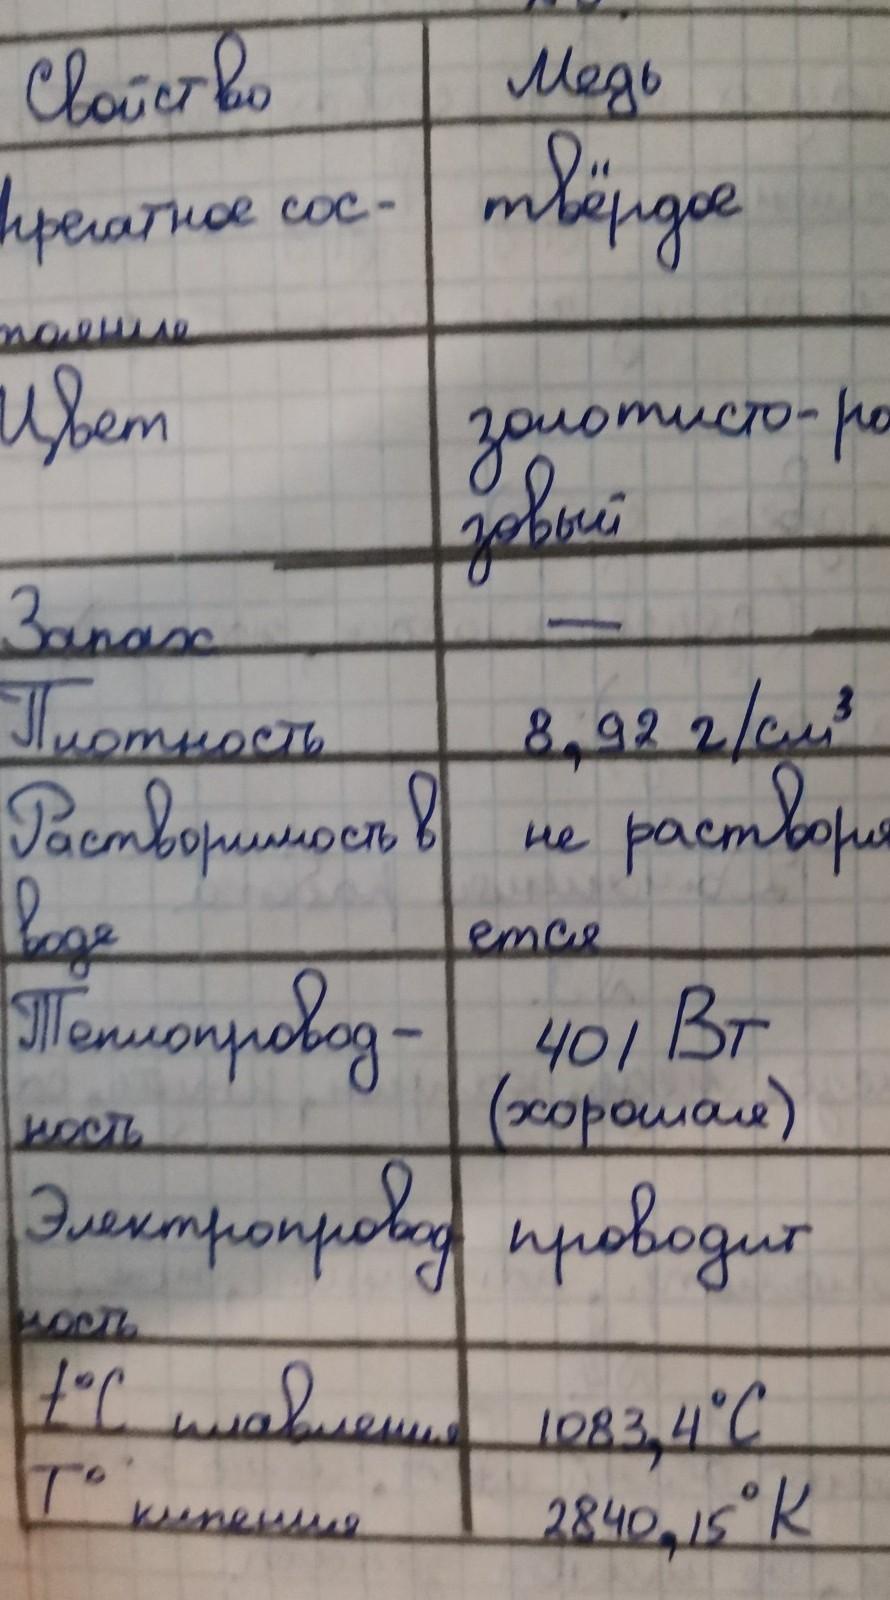 Свойство Медь
Агрегатное сос- твёрдое
тояние
Цвет золотисто-ро
зовый
Запах —
Плотность 8,92 г/см³
Растворимость в не растворя
воде ется
Теплопровод- 401 Вт
ность (хорошая)
Электропровод проводит
ность
t°C плавления 1083,4°C
T° кипения 2840,15°K